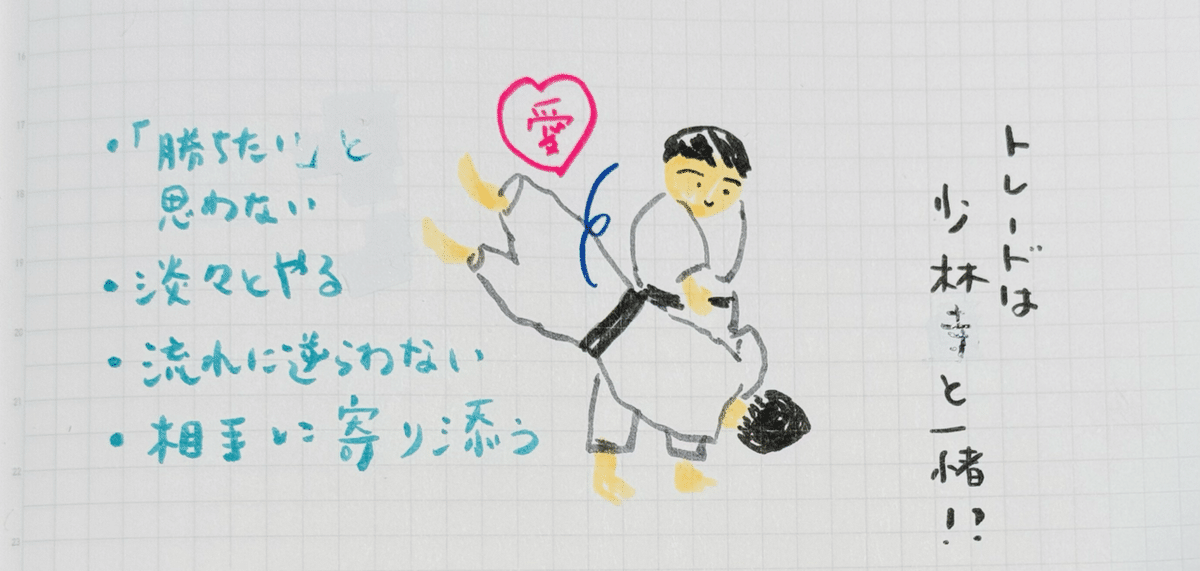 トレードは
少林寺と一緒!?
愛
・「勝ちたい」と
思わない
・淡々とやる
・流れに逆らわない
・相手に寄り添う